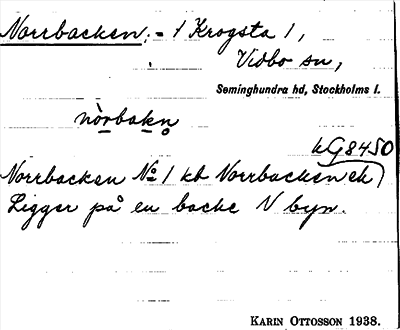 Norrbacken, - t Krogsta 1,
Vidbo sn,
Seminghundra hd, Stockholms l.
nòrbakn̥
kG8450
Norrbacken No 1 kt Norrbacken ek
Ligger på en backe N byn.
KARIN OTTOSSON 1938.